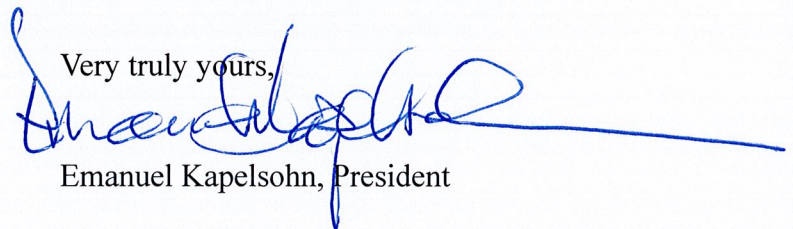 Very truly yours,
Emanuel Kapelsohn, President